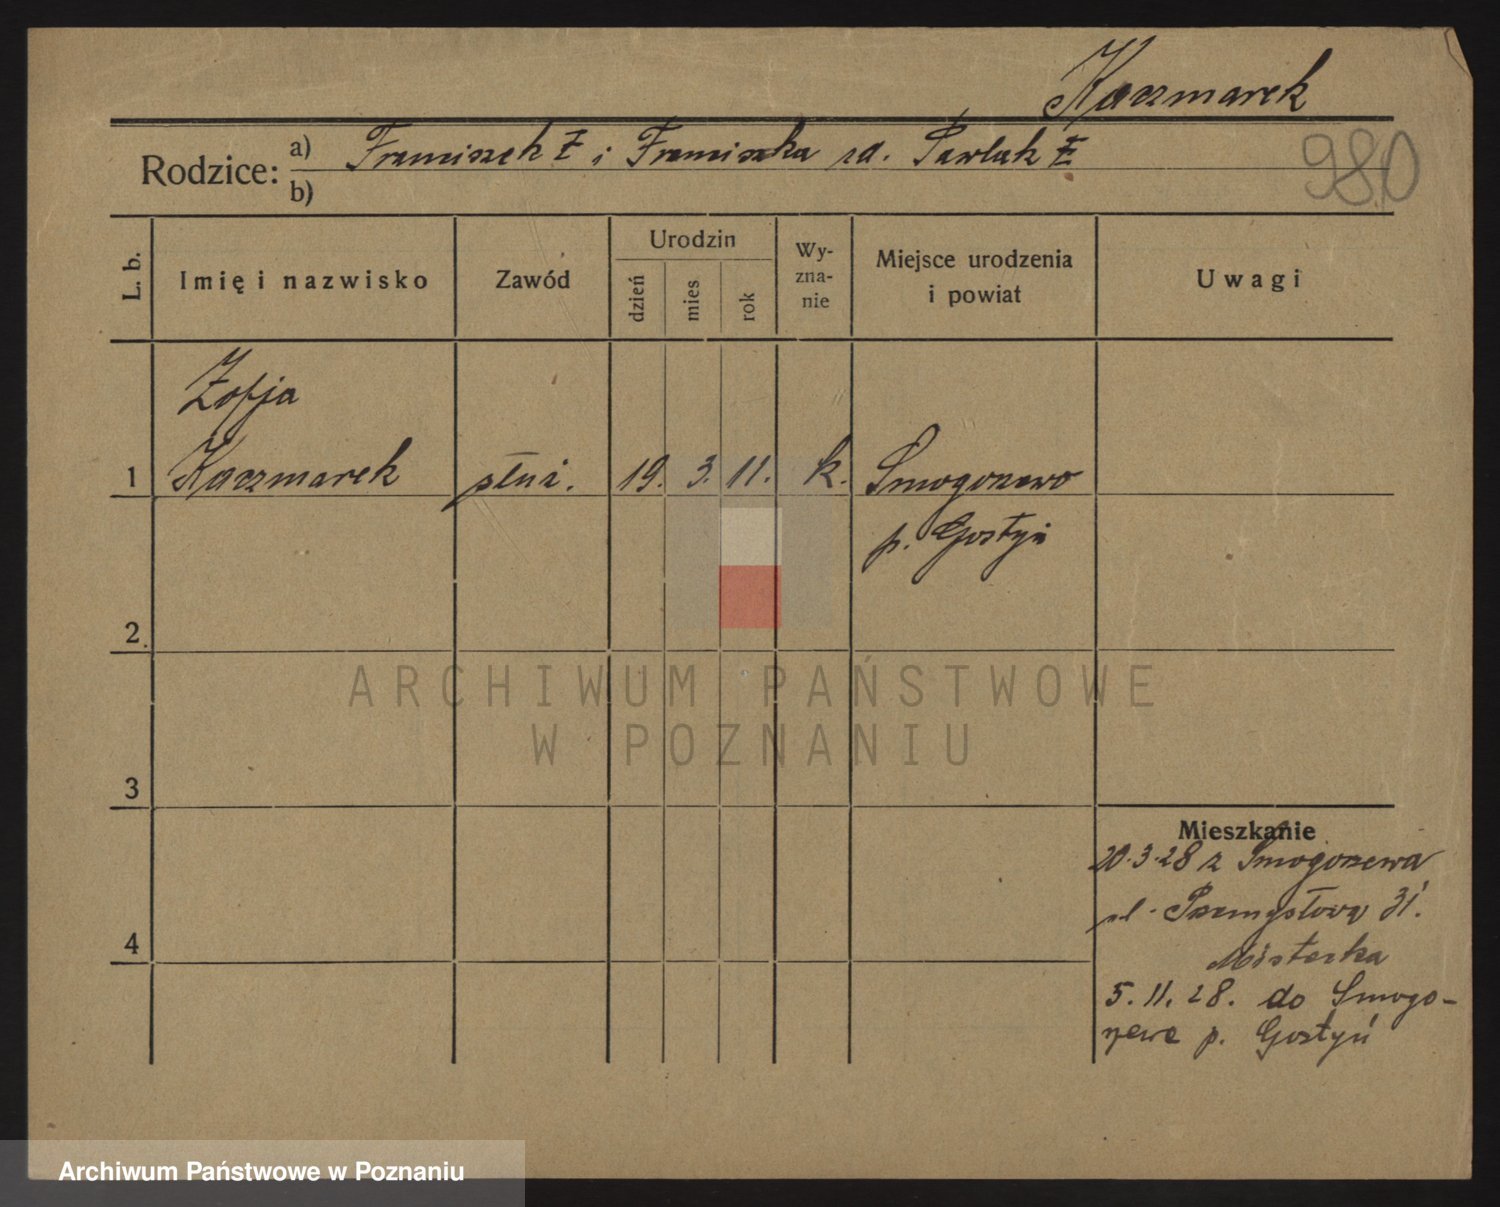 Kaczmarek
Rodzice: a) Franciszek i Franciszka rd. Pawlak
b)
980
L. b.
Imię i nazwisko
Zawód
Urodzin
dzień
mies
rok
Wy-
zna-
nie
Miejsce urodzenia
i powiat
Uwagi
Zofja
1 Kaczmarek służ. 19. 3. 11. k. Smogorzewo
p. Gostyń
2
ARCHIWUM PAŃSTWOWE
W POZNANIU
3
Mieszkanie
20.3.28 z Smogorzewa
ul. Przemysłowa 31.
4
5.11.28. do Smogo-
rzewa p. Gostyń
Archiwum Państwowe w Poznaniu